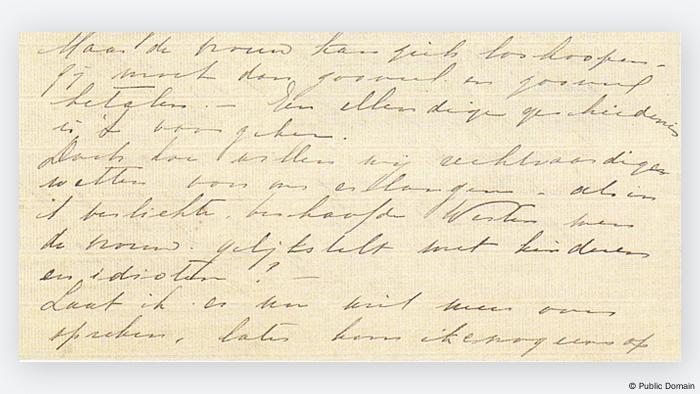 Maar de vrouw kan zich loskoopen -
zij moet dan zooveel en zooveel
betalen. - Een ellendige geschiedenis
is 't voorzeker.
Doch hoe zullen wij rechtvaardigen
wetten voor ons erlangen, als in
't verlichte, beschaafde Westen men
de vrouw gelijkstelt met kinderen
en idioten! -
Laat ik er nu niet meer over
spreken, later kom ik er nog eens op
© Public Domain